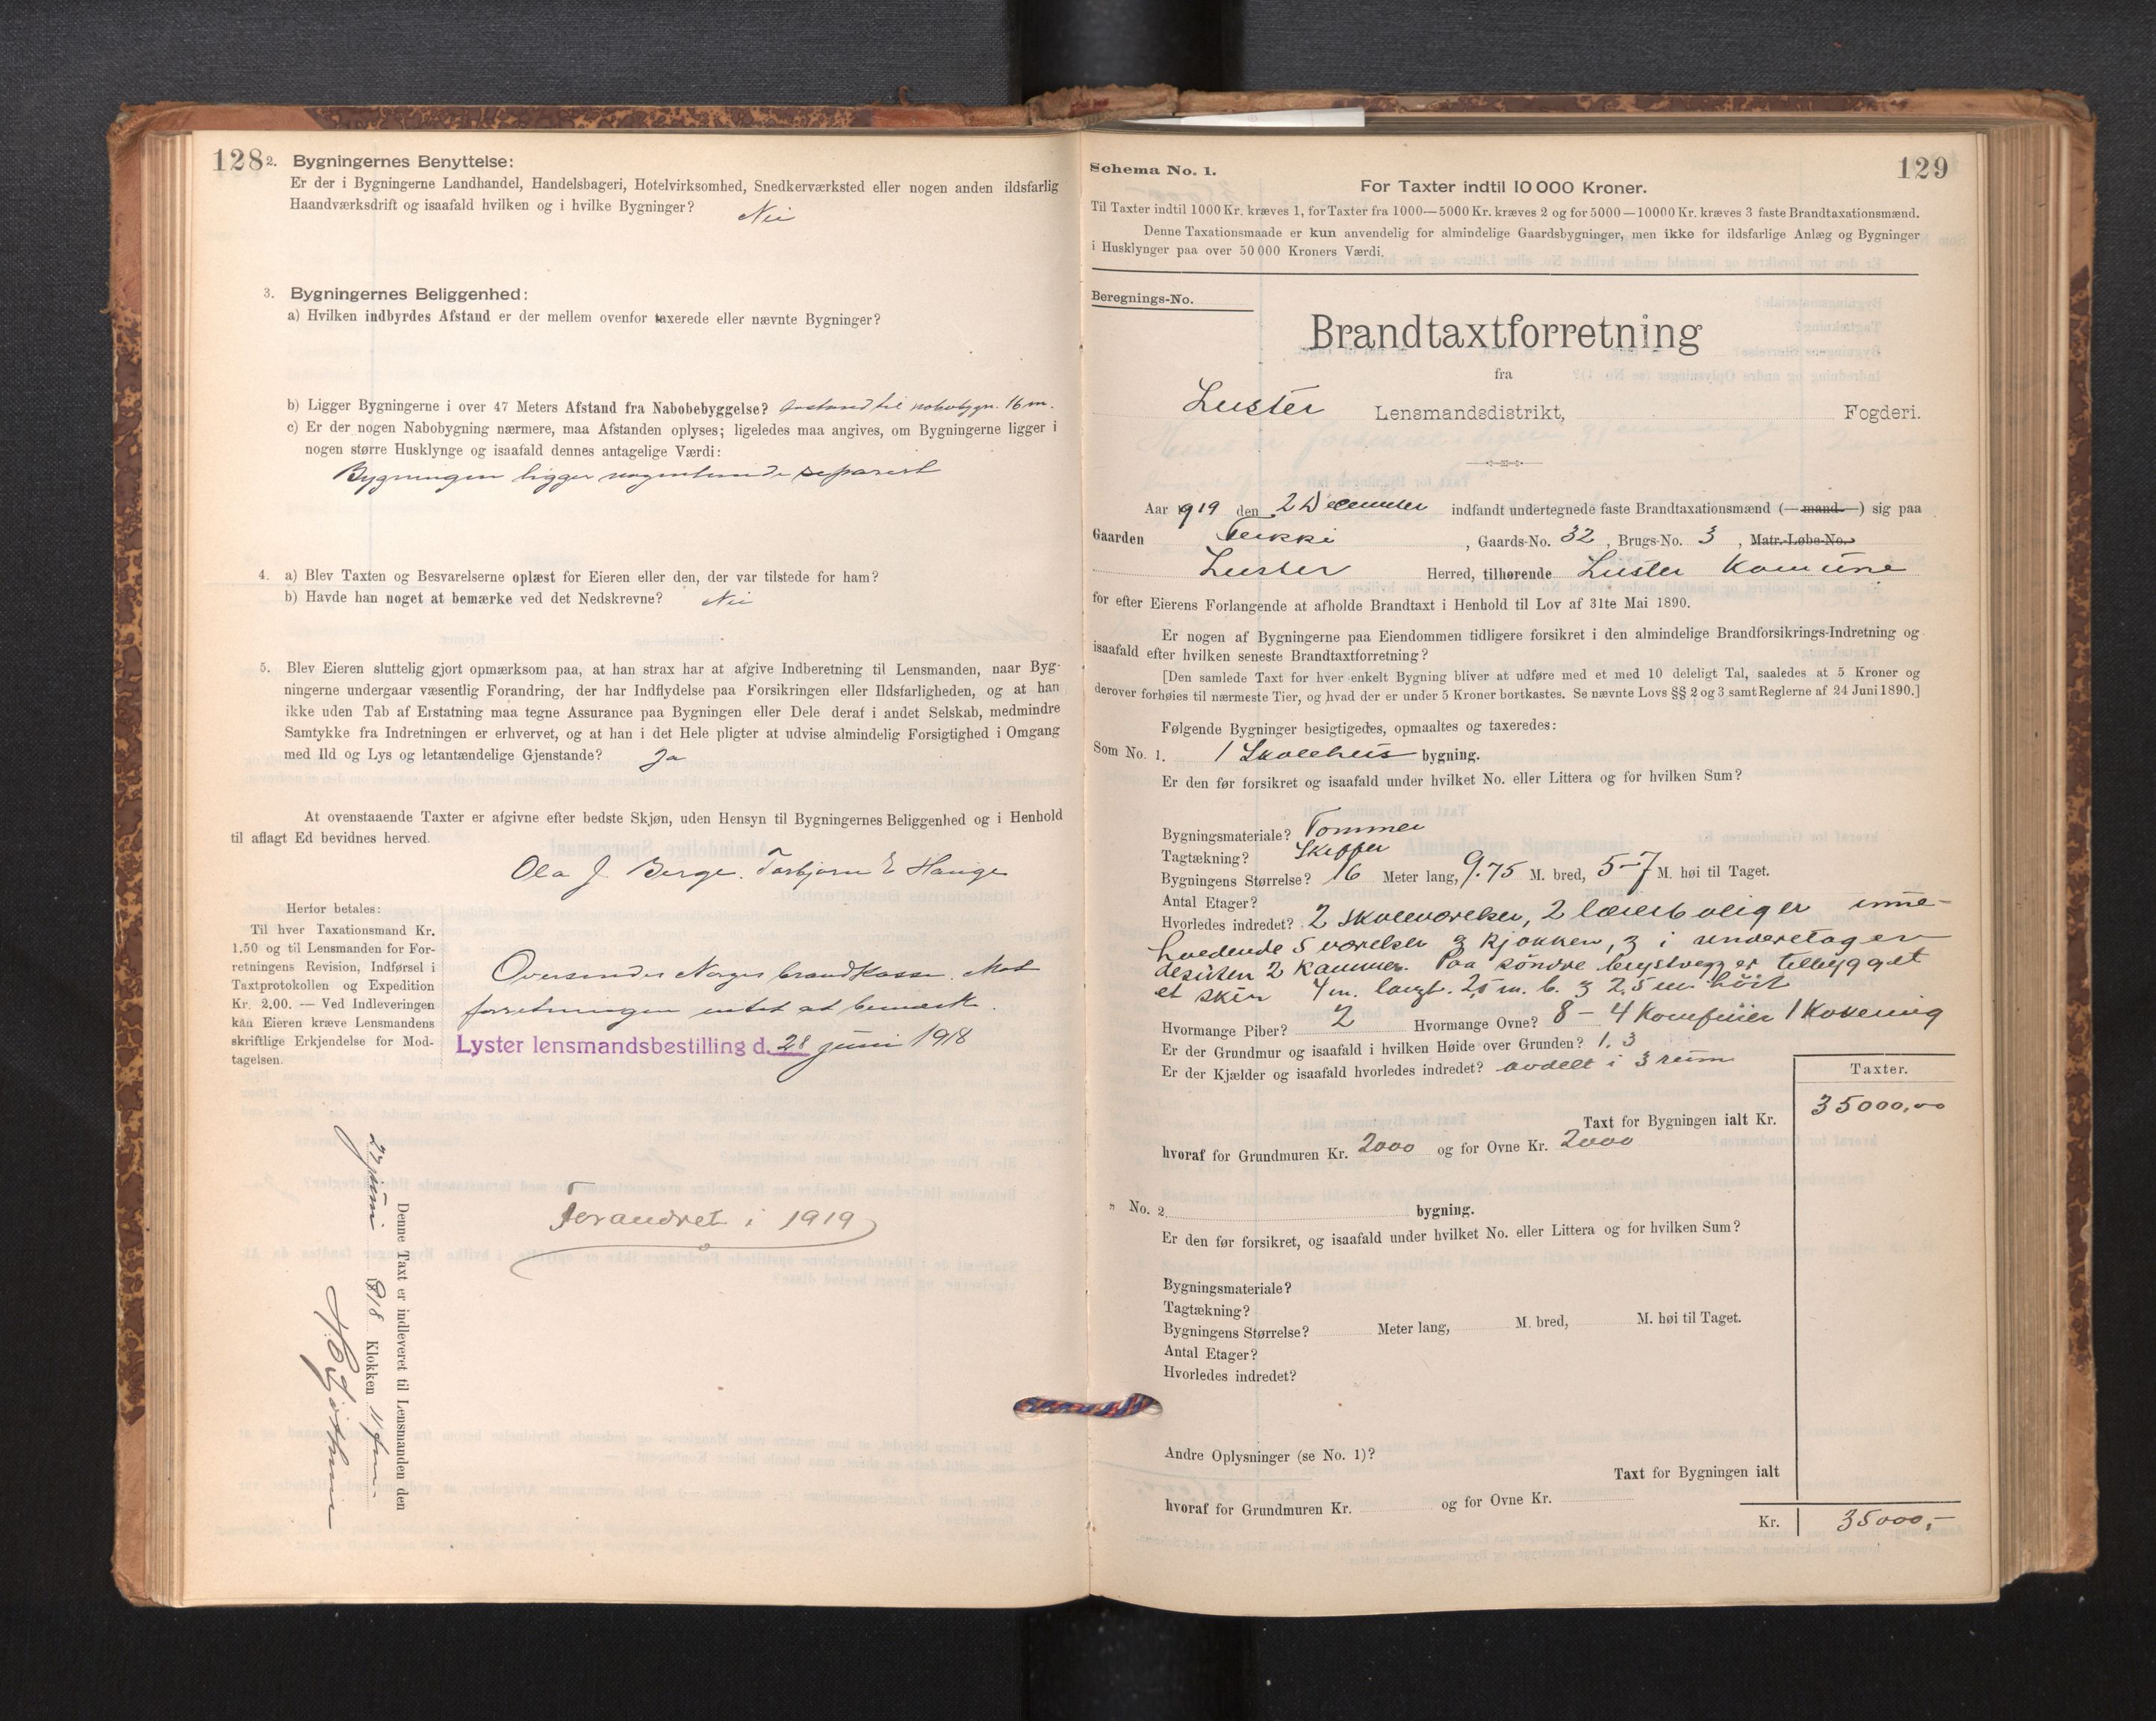 128
2. Bygningernes Benyttelse:
Er der i Bygningerne Landhandel, Handelsbageri, Hotelvirksomhed, Snedkerværksted eller nogen anden ildsfarlig
Haandværksdrift og isaafald hvilken og i hvilke Bygninger? Nei
3. Bygningernes Beliggenhed:
a) Hvilken indbyrdes Afstand er der mellem ovenfor taxerede eller nævnte Bygninger?
b) Ligger Bygningerne i over 47 Meters Afstand fra Nabobebyggelse? Avstand til nabobygn. 16 m.
c) Er der nogen Nabobygning nærmere, maa Afstanden oplyses; ligeledes maa angives, om Bygningerne ligger i
nogen større Husklynge og isaafald dennes antagelige Værdi:
Bygningen ligger nogenlunde separert
4. a) Blev Taxten og Besvarelserne oplæst for Eieren eller den, der var tilstede for ham?
b) Havde han noget at bemærke ved det Nedskrevne? Nei
5. Blev Eieren sluttelig gjort opmærksom paa, at han strax har at afgive Indberetning til Lensmanden, naar Byg-
ningerne undergaar væsentlig Forandring, der har Indflydelse paa Forsikringen eller Ildsfarligheden, og at han
ikke uden Tab af Erstatning maa tegne Assurance paa Bygningen eller Dele deraf i andet Selskab, medmindre
Samtykke fra Indretningen er erhvervet, og at han i det Hele pligter at udvise almindelig Forsigtighed i Omgang
med Ild og Lys og letantændelige Gjenstande? Ja
At ovenstaaende Taxter er afgivne efter bedste Skjøn, uden Hensyn til Bygningernes Beliggenhed og i Henhold
til aflagt Ed bevidnes herved.
Ola J. Berge. Torbjørn E Hauge
Herfor betales:
Til hver Taxationsmand Kr.
1.50 og til Lensmanden for For-
retningens Revision, Indførsel i
Taxtprotokollen og Expedition
Kr. 2.00. — Ved Indleveringen
kan Eieren kræve Lensmandens
skriftlige Erkjendelse for Mod-
tagelsen.
Oversendes Norges brandkasse. Mot
forretningen intet at bemerke.
Lyster lensmandsbestilling d. 28 juni 1918
Forandret i 1919
Denne Taxt er indleveret til Lensmanden den
27 juni 1918 Klokken 11 fm.
129
Schema No. 1.
For Taxter indtil 10 000 Kroner.
Til Taxter indtil 1000 Kr. kræves 1, for Taxter fra 1000—5000 Kr. kræves 2 og for 5000—10000 Kr. kræves 3 faste Brandtaxationsmænd.
Denne Taxationsmaade er kun anvendelig for almindelige Gaardsbygninger, men ikke for ildsfarlige Anlæg og Bygninger
i Husklynger paa over 50 000 Kroners Værdi.
Beregnings-No.
Brandtaxtforretning
fra
Luster Lensmandsdistrikt, Fogderi.
Aar 1919 den 2 December indfandt undertegnede faste Brandtaxationsmænd (—mand.—) sig paa
Gaarden Teikki, Gaards-No. 32, Brugs-No. 3, Matr.-Løbe-No.
Luster Herred, tilhørende Luster Komune
for efter Eierens Forlangende at afholde Brandtaxt i Henhold til Lov af 31te Mai 1890.
Er nogen af Bygningerne paa Eiendommen tidligere forsikret i den almindelige Brandforsikrings-Indretning og
isaafald efter hvilken seneste Brandtaxtforretning?
[Den samlede Taxt for hver enkelt Bygning bliver at udføre med et med 10 deleligt Tal, saaledes at 5 Kroner og
derover forhøies til nærmeste Tier, og hvad der er under 5 Kroner bortkastes. Se nævnte Lovs §§ 2 og 3 samt Reglerne af 24 Juni 1890.]
Følgende Bygninger besigtigedes, opmaaltes og taxeredes:
Som No. 1. 1 Skolehus bygning.
Er den før forsikret og isaafald under hvilket No. eller Littera og for hvilken Sum?
Bygningsmateriale? Tømmer
Tagtækning? Skiffer
Bygningens Størrelse? 16 Meter lang, 9.75 M. bred, 5-7 M. høi til Taget.
Antal Etager?
Hvorledes indredet? 2 skoleværelser, 2 lærerboliger inne-
hvedende 5 værelser & kjøkken, 3 i underetagen
desuten 2 kammer. Paa søndre brystvegg er tilbygget
et skur 4 m. langt. 2,5 m. b. & 2,5 m høit
Hvormange Piber? 2 Hvormange Ovne? 8 - 4 komfuier 1 Kokening
Er der Grundmur og isaafald i hvilken Høide over Grunden? 1,3
Er der Kjælder og isaafald hvorledes indredet? avdelt i 3 rum
Taxter.
Taxt for Bygningen ialt Kr. 35000,00
hvoraf for Grundmuren Kr. 2000 og for Ovne Kr. 2000
" No. 2 bygning.
Er den før forsikret, og isaafald under hvilket No. eller Littera og for hvilken Sum?
Bygningsmateriale?
Tagtækning?
Bygningens Størrelse? Meter lang, M. bred, M. høi til Taget.
Antal Etager?
Hvorledes indredet?
Andre Oplysninger (se No. 1)?
Taxt for Bygningen ialt
hvoraf for Grundmuren Kr. og for Ovne Kr.
Kr. 35000,-